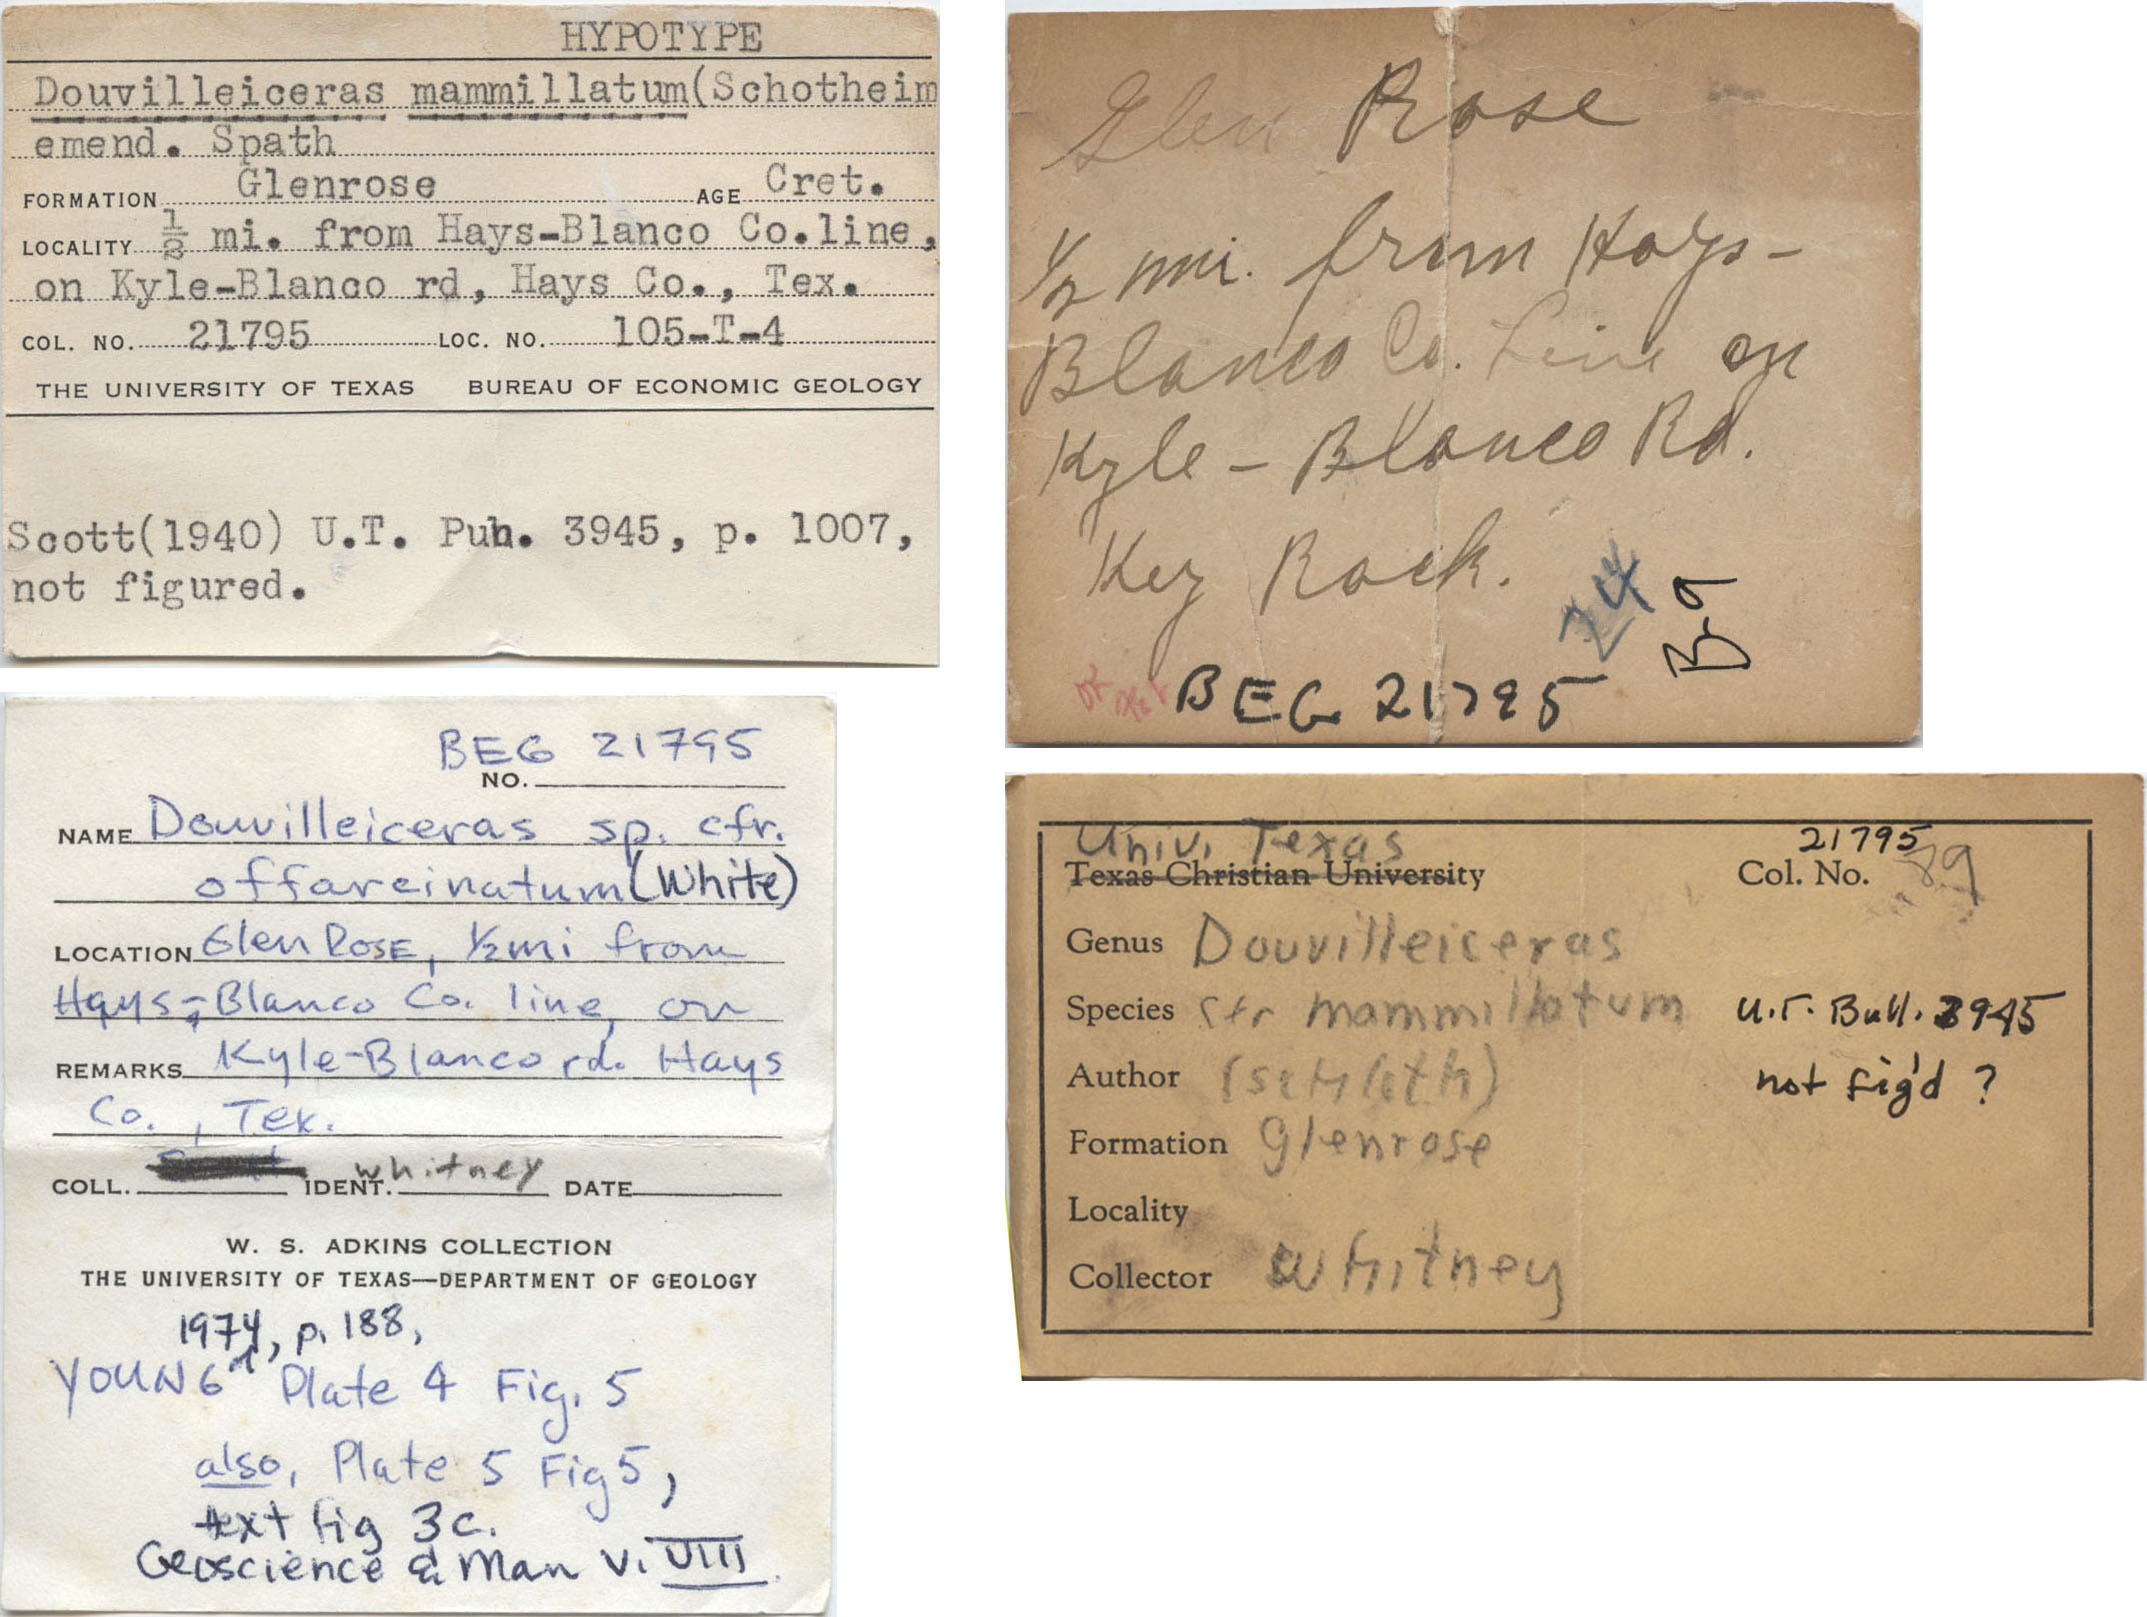 HYPOTYPE
Douvilleiceras mammillatum(Schotheim
emend. Spath
FORMATION Glenrose AGE Cret.
LOCALITY ½ mi. from Hays-Blanco Co.line,
on Kyle-Blanco rd, Hays Co., Tex.
COL. NO. 21795 LOC. NO. 105-T-4
THE UNIVERSITY OF TEXAS BUREAU OF ECONOMIC GEOLOGY
Scott(1940) U.T. Pub. 3945, p. 1007,
not figured.
Glen Rose
1/2 mi. from Hays-
Blanco Co. Line on
Kyle - Blanco Rd.
Key Rock.
24
BEG 21795
BEG 21795
NO.
NAME Douvilleiceras sp. cfr.
offarcinatum (White)
LOCATION Glen Rose, 1/2 mi from
Hays-Blanco Co. line, on
REMARKS Kyle-Blanco rd. Hays
Co., Tex.
COLL. IDENT. Whitney DATE
W. S. ADKINS COLLECTION
THE UNIVERSITY OF TEXAS—DEPARTMENT OF GEOLOGY
1974, p. 188,
YOUNG Plate 4 Fig. 5
also, Plate 5 Fig 5,
text fig 3c.
Geoscience & Man V. VIII
Univ. Texas 21795
Texas Christian University Col. No. 89
Genus Douvilleiceras
Species cfr mammillatum U.T. Bull. 3945
Author not fig'd ?
Formation Glenrose
Locality
Collector Whitney